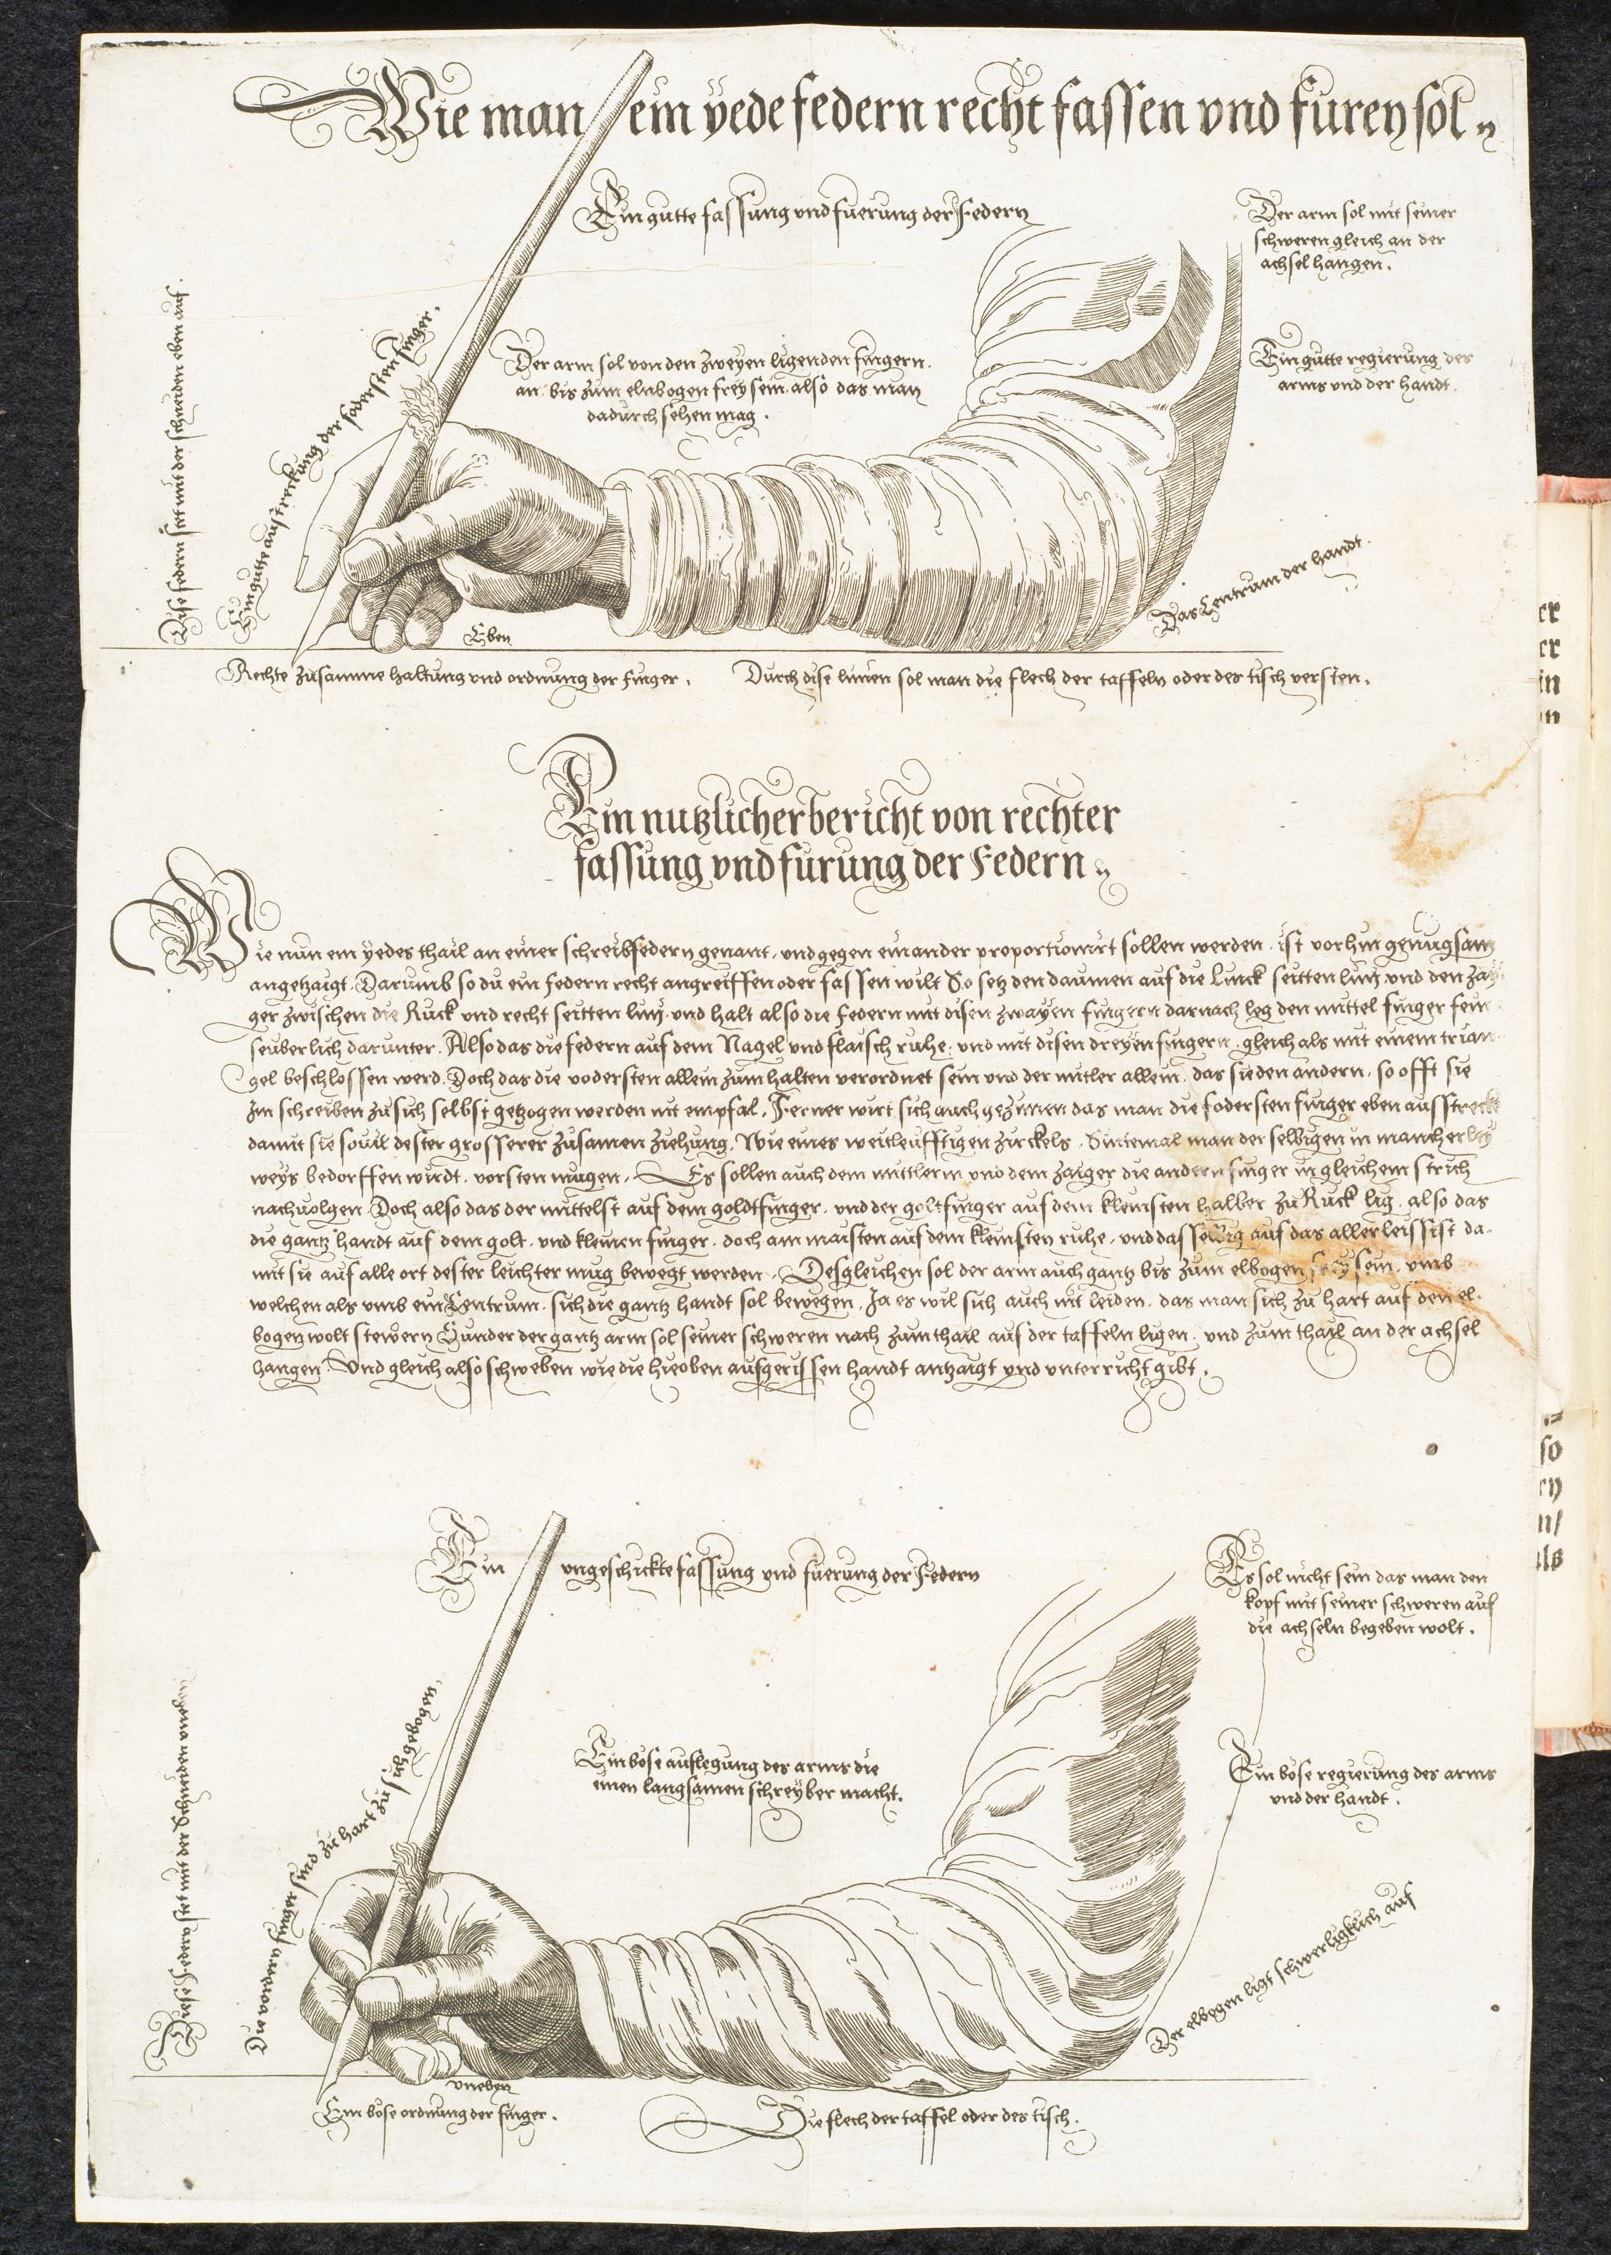 Wie man ein yede federn recht fassen vnd furen sol
Ein gutte fassung vnd fuerung der Federn
Der arm sol mit seiner
schweren gleich an der
achsel hangen.
Dise federn stet mit der schneiden eben auf.
Ein gutte austreckung der fodersten finger.
Der arm sol von den zweyen ligenden fingern.
an bis zum elnbogen frey sein. also das man
dadurch sehen mag.
Ein gutte regierung des
arms vnd der handt.
Das Centrum der handt.
Eben
Rechte zusamme haltung vnd ordnung der finger.
Durch dise linien sol man die flech der taffeln oder des tisch versten.
Ein nutzlicher bericht von rechter
fassung vnd furung der Federn
Wie nun ein yedes thail an einer schreibfedern genant, vnd gegen einander proportionirt sollen werden. ist vorhin genugsam
angetzaigt. Darumb so du ein federn recht angreiffen oder fassen wilt So setz den daumen auf die Linck seitten liny vnd den zay
ger zwischen die Ruck vnd recht seitten liny. vnd halt also die federn mit disen zwayen fingern darnach leg den mittel finger fein
seuberlich darunter. Also das die federn auf dem Nagel vnd flaisch ruhe. vnd mit disen dreyen fingern. gleich als mit einem trian
gel beschlossen werd. Doch das die vodersten allein zum halten verordnet sein vnd der mitler allein. das sie den andern. so offt sie
Im schreiben zu sich selbst getzogen werden nit empfal. Ferner wirt sich auch gezimen das man die fodersten finger eben ausstreck
damit sie souil dester grosserer zusamen ziehung. Wie eines weitleufftigen zirckels. Sintemal man der selbigen in mancherley
weys bedorffen wirdt. vorsten mugen. Es sollen auch dem mittlern vnd dem zaiger die andern finger in gleichem strich
nachuolgen. Doch also das der mittelst auf dem goldtfinger. vnd der goltfinger auf dem kleinsten halber zu Ruck lig. also das
die gantz handt auf dem golt. vnd kleinen finger. doch am maisten auf dem kleinsten ruhe. vnd dasselbig auf das aller leissist da
mit sie auf alle ort dester leichter mug bewegt werden. Desgleichen sol der arm auch gantz bis zum elbogen frey sein. vmb
welchen als vmb ein Centrum. sich die gantz handt sol bewegen. Ja es wil sich auch nit leiden. das man sich zu hart auf den el
bogen wolt stewern Sunder der gantz arm sol seiner schweren nach zum thail auf der taffeln ligen. vnd zum thail an der achsel
hangen. Vnd gleich also schweben wie die hieoben aufgerissen handt antzaigt vnd vnterricht gibt.
Ein vngeschickte fassung vnd fuerung der Federn
Es sol nicht sein das man den
kopf mit seiner schweren auf
die achseln begeben wolt.
Diese Federn stet mit der Schneiden vneben
Die vordern finger sind zu hart zu sich gebogen.
Ein bose auflegung des arms die
einen langsamen schreyber macht.
Ein bose regierung des arms
vnd der handt.
Der elbogen ligt schwerligklich auf
vneben
Ein bose ordnung der finger.
Die flech der taffel oder des tisch.